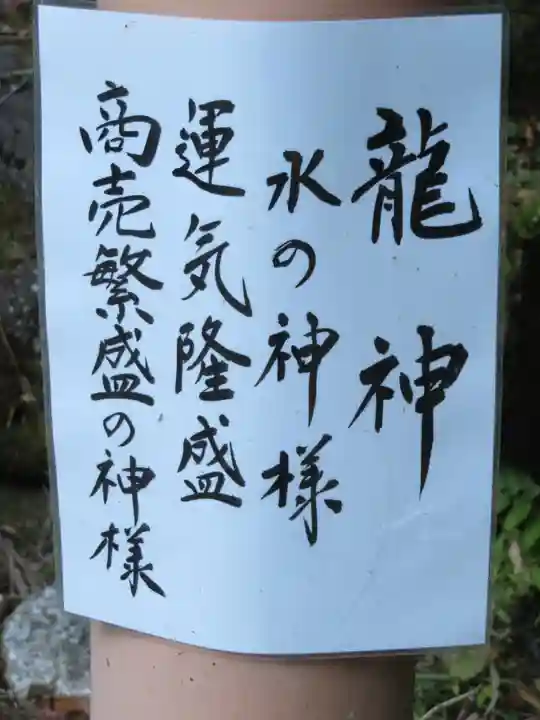 龍神
水の神様
運気隆盛
商売繁盛の神様